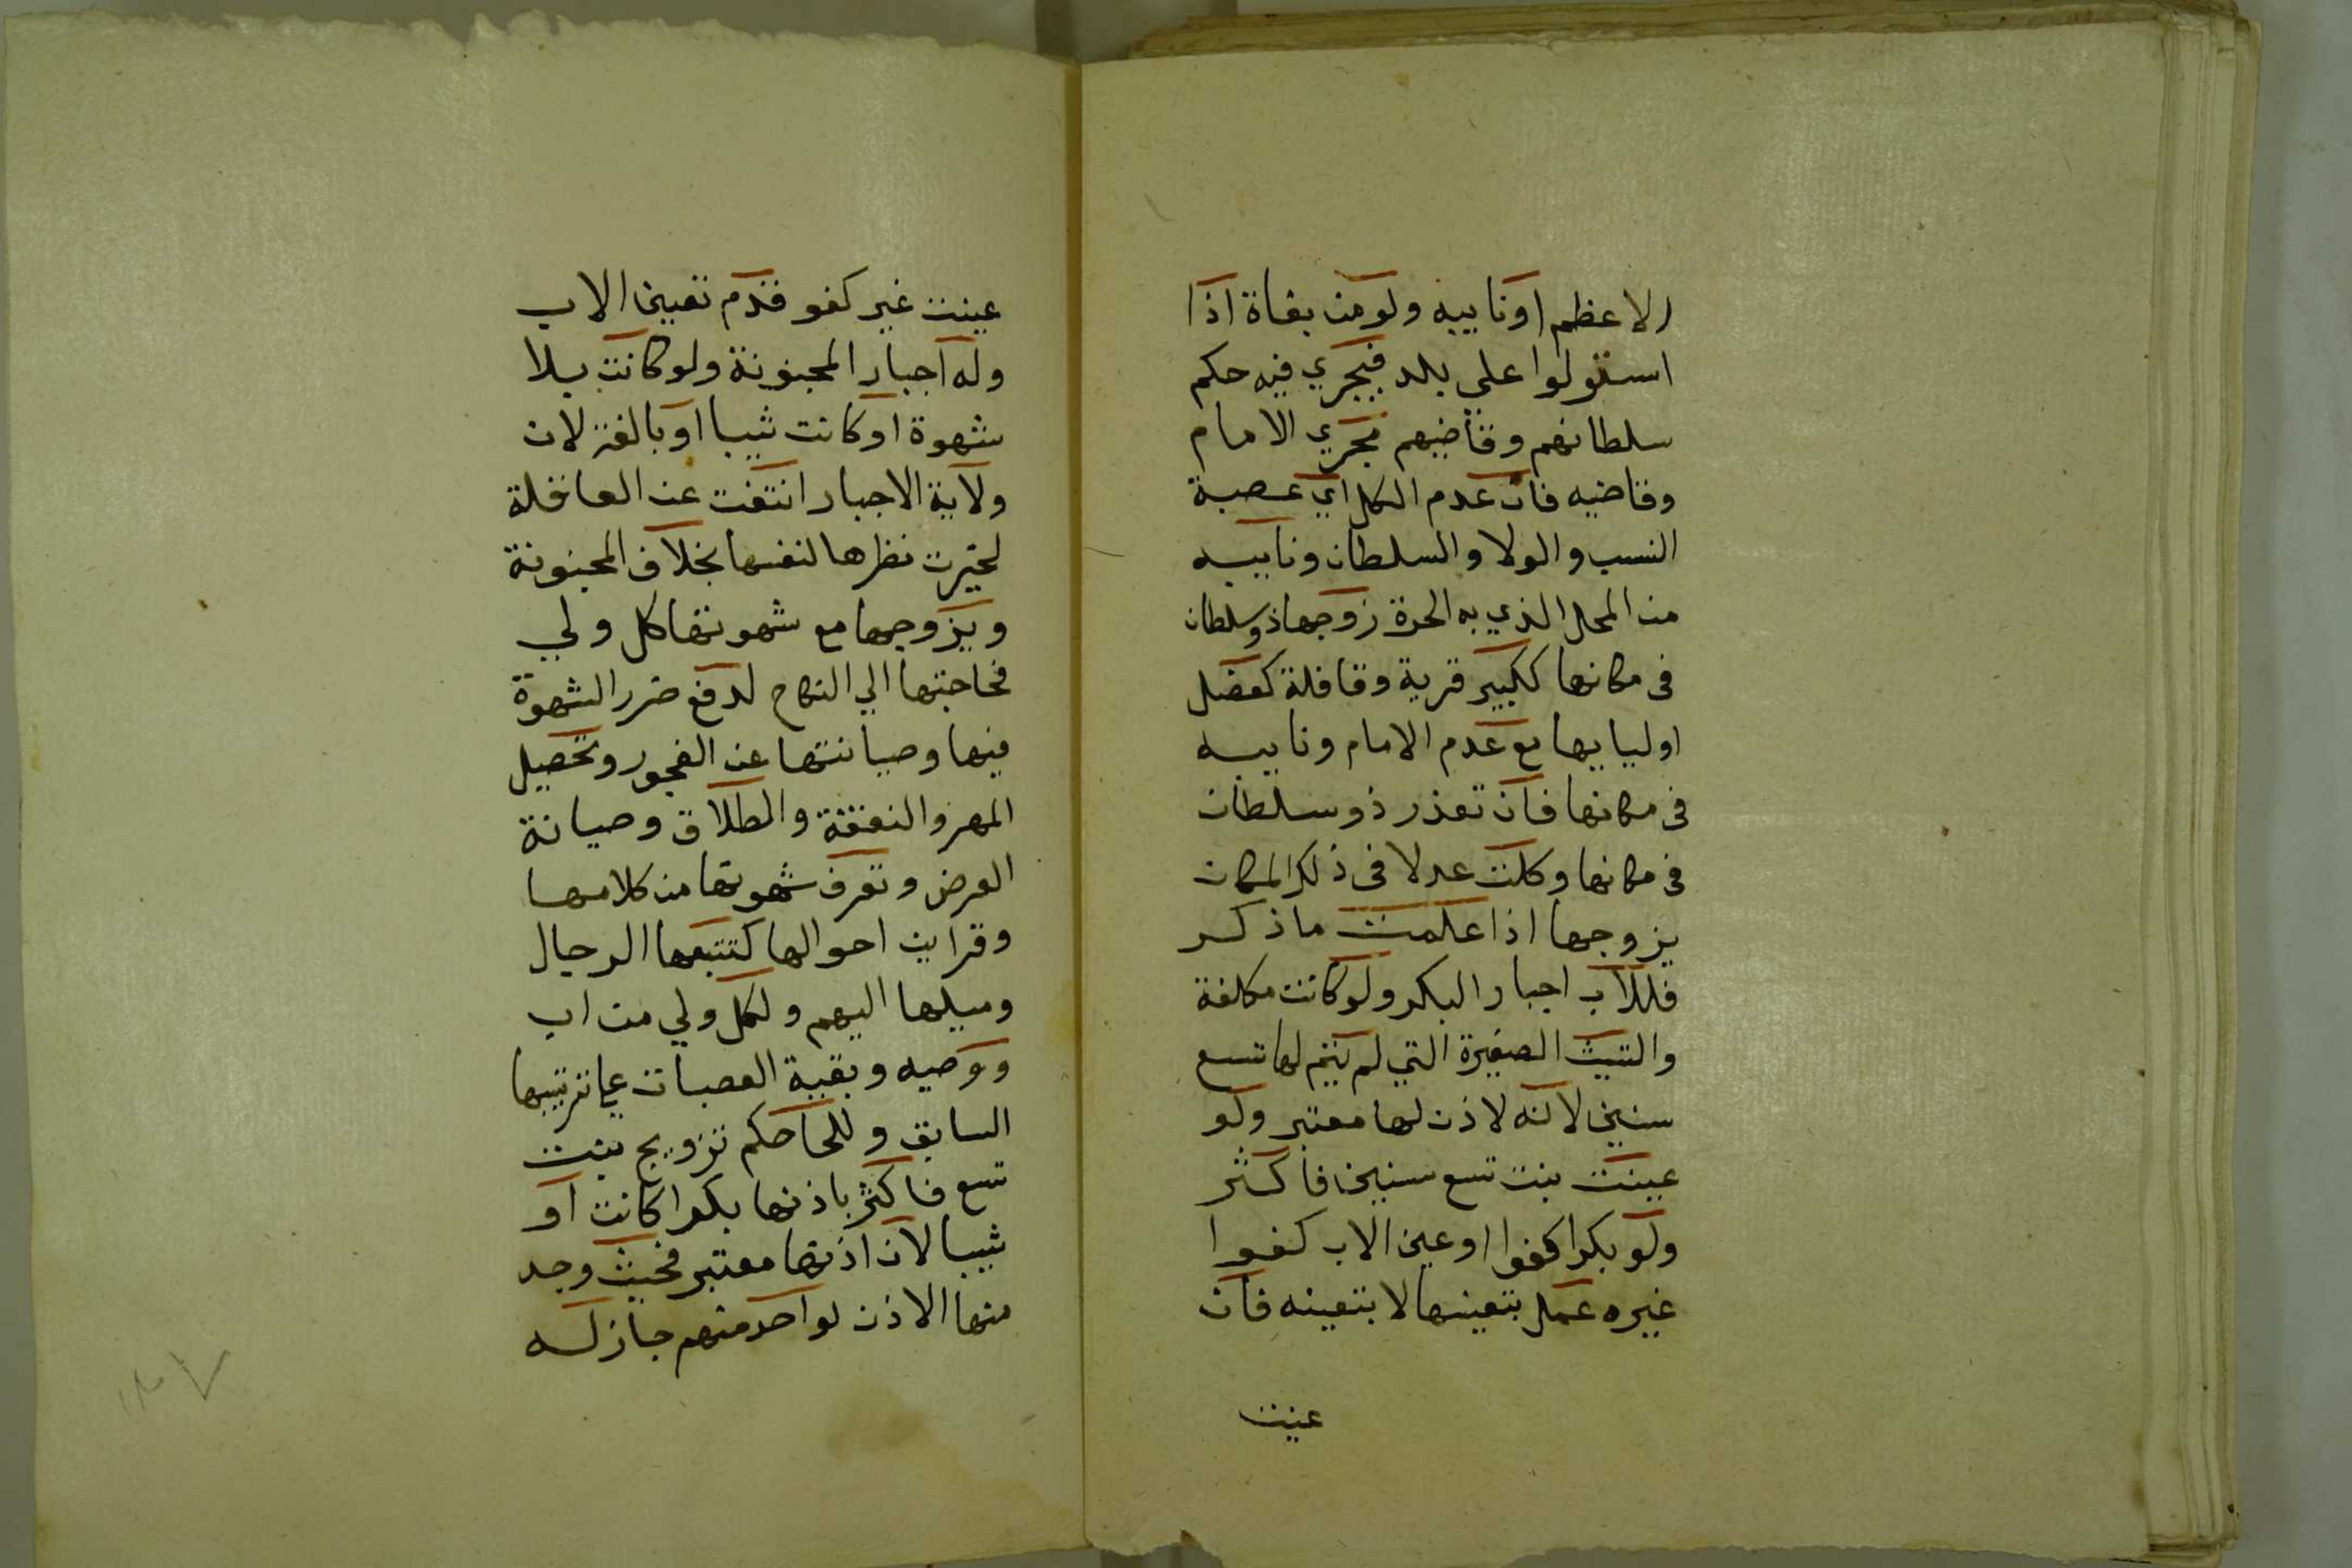 الاعظم اونايبه ولومن بغاة اذا
استولوا على بلد فيجري فيه حكم
سلطانهم وقاضيهم مجري الامام
وقاضيه فان عدم الكل اي عصبة
النسب والولا والسلطان ونايبه
من المحل الذي به الحرة زوجها ذوسلطان
فى مكانها ككبير قرية وقافلة كعضل
اوليايها مع عدم الامام ونايبه
فى مكانها فان تعذر ذو سلطان
فى مكانها وكلت عدلا فى ذلك المكان
يزوجها اذا علمت ماذكر
فللاب اجبار البكر ولوكانت مكلفة
والثيب الصغيرة التي لم يتم لها تسع
سنين لانه لاذن لها معتبر ولو
عينت بنت تسع سنين فاكثر
ولو بكرا كفوا اوعين الاب كفوا
غيره عمل بتعينها لا بتعينه فان
عينت
عينت غير كفو قدم تعيين الاب
وله اجبار المجنونة ولوكانت بلا
شهوة اوكانت ثيبا اوبالغة لان
ولاية الاجبار انتفت عن العاقلة
لخيرت نظرها لنفسها بخلاف المجنونة
ويزوجها مع شهوتها كل ولي
فحاجتها الي النكاح لدفع ضرر الشهوة
فيها وصيانتها عن الفجور وتحصيل
المهر والنفقة والطلاق وصيانة
العرض وتعرف شهوتها من كلامها
وقراين احوالها كتتبعها الرجال
وميلها اليهم ولكل ولي من اب
ووصيه وبقية العصبات على ترتيبها
السابق وللحاكم تزويج بنت
تسع فاكثر باذنها بكرا كانت او
ثيبا لان اذنها معتبر فحيث وجد
منها الاذن لواحد منهم جازله